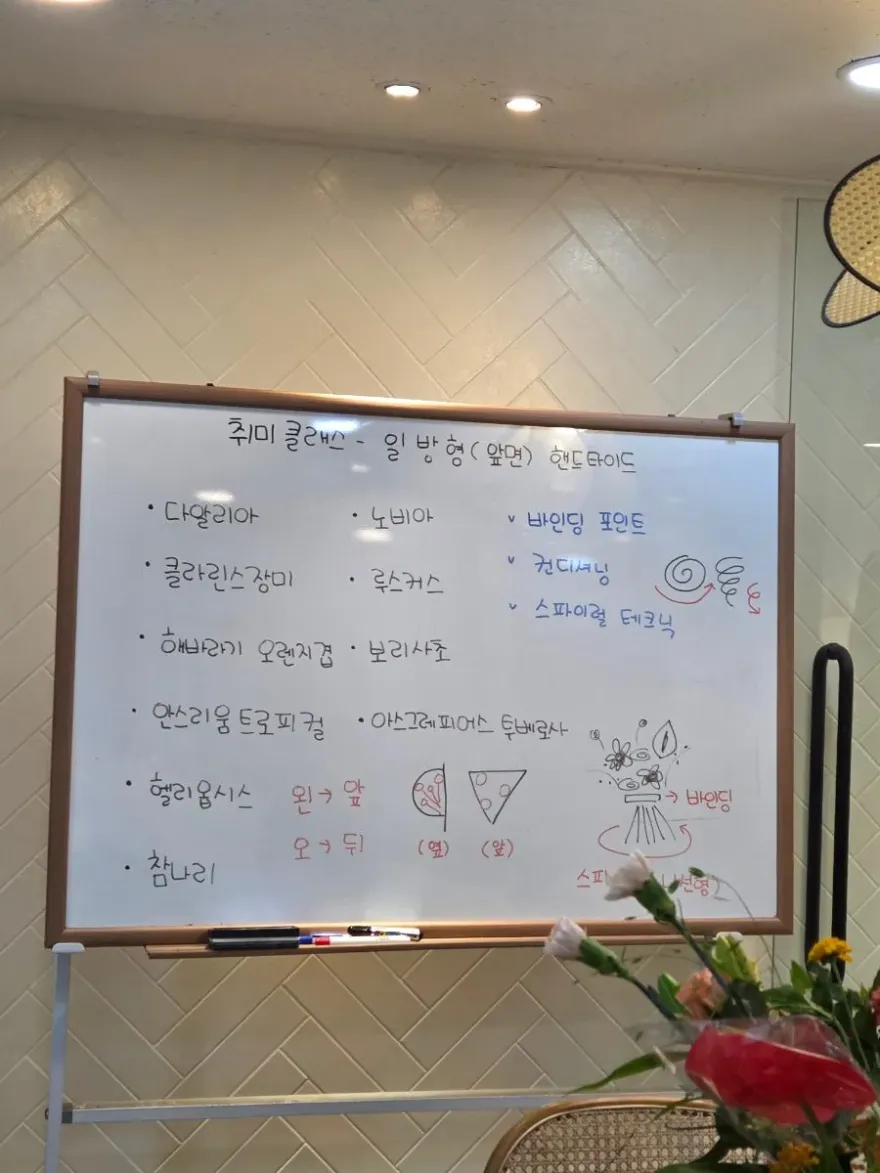 취미클래스 - 일방형(앞면) 핸드타이드
· 다알리아
· 클라린스장미
· 해바라기 오렌지겹
· 안스리움트로피컬
· 헬리옵시스
· 참나리
· 노비아
· 루스커스
· 보리사초
· 아스크레피어스 투베로사
v 바인딩 포인트
v 컨디셔닝
v 스파이럴 테크닉
왼→앞
오→뒤
(옆)
(앞)
→ 바인딩
스파
변형